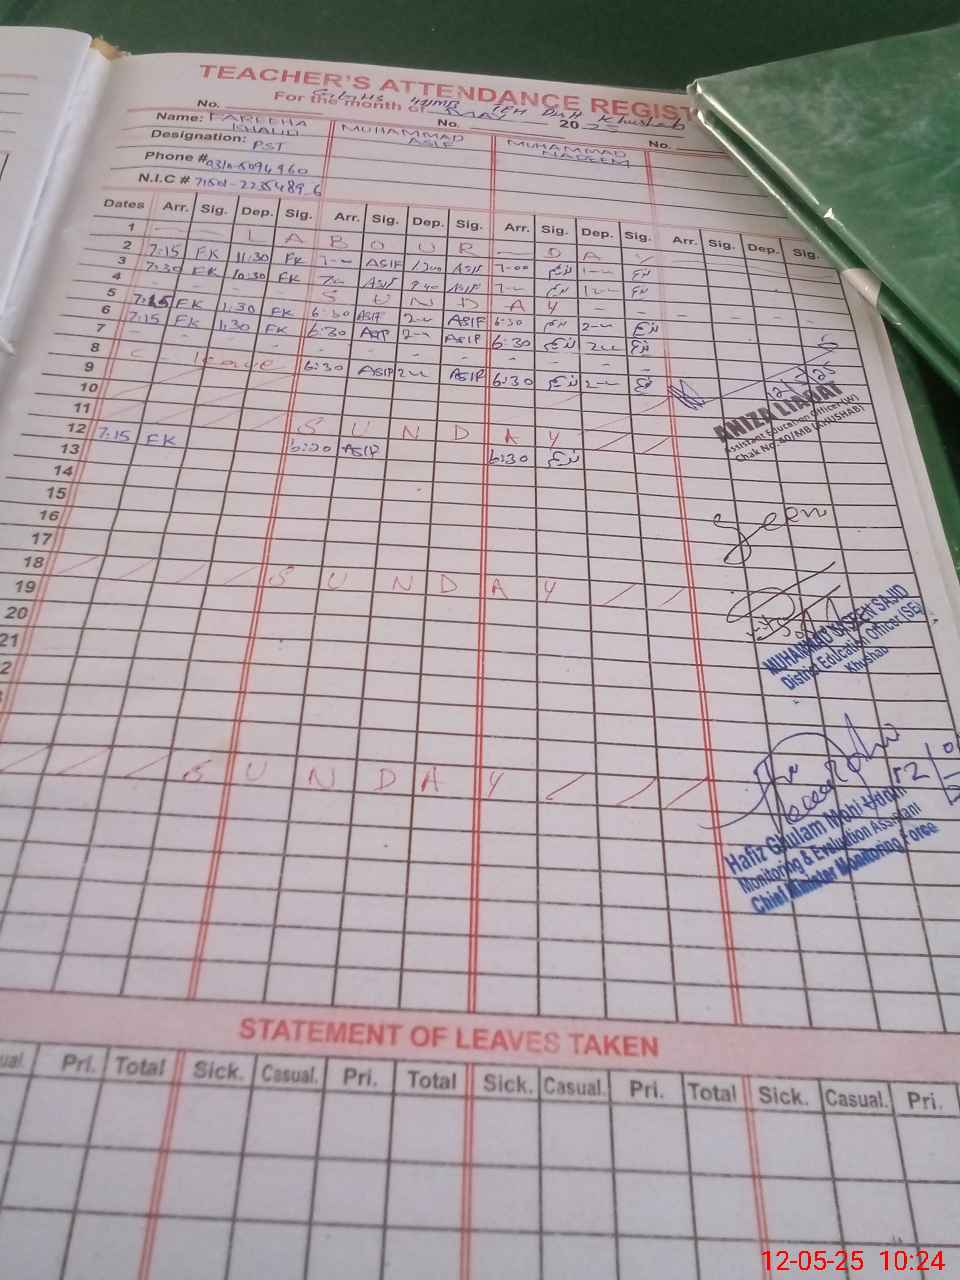 TEACHER'S ATTENDANCE REGIST
For the month of MAY 20
TEH Dist Khushab
No. No. No.
Name: FAREEHA KHALID MUHAMMAD ASIF MUHAMMAD NADEEM
Designation: PST
Phone #
N.I.C #
Dates Arr. Sig. Dep. Sig. Arr. Sig. Dep. Sig. Arr. Sig. Dep. Sig. Arr. Sig. Dep. Sig.
1 L A B O U R D A Y
2 7:15 FK 11:30 FK 7-00 ASIF ASIF 7-00 ندیم ندیم
3 7:30 FK 10:30 FK ASIF ASIF ندیم ندیم
4 S U N D A Y
5 7:15 FK 1:30 FK 6:30 ASIF 2-00 ASIF 6:30 ندیم 2-00 ندیم
6 7:15 FK 1:30 FK 6:30 ASIF 2-00 ASIF 6:30 ندیم 2-00 ندیم
7
8 C - leave 6:30 ASIF 2-00 ASIF 6:30 ندیم 2-00 ندیم
9
10
11 S U N D A Y
12 7:15 FK 6:30 ASIF 6:30 ندیم
13
14
15
16
17
18 S U N D A Y
19
20
21
2
S U N D A Y
12/5/25
ANIZA LIAQAT
Assistant Education Officer (W)
Chak No. 80/MB (KHUSHAB)
Seen
MUHAMMAD NASEEN SAJID
District Education Officer (SE)
Khushab
Hafiz Ghulam Mohi Uddin
Monitoring & Evaluation Assistant
Chief Minister Monitoring Force
STATEMENT OF LEAVES TAKEN
ual. Pri. Total Sick. Casual. Pri. Total Sick. Casual. Pri. Total Sick. Casual. Pri.
12-05-25 10:24